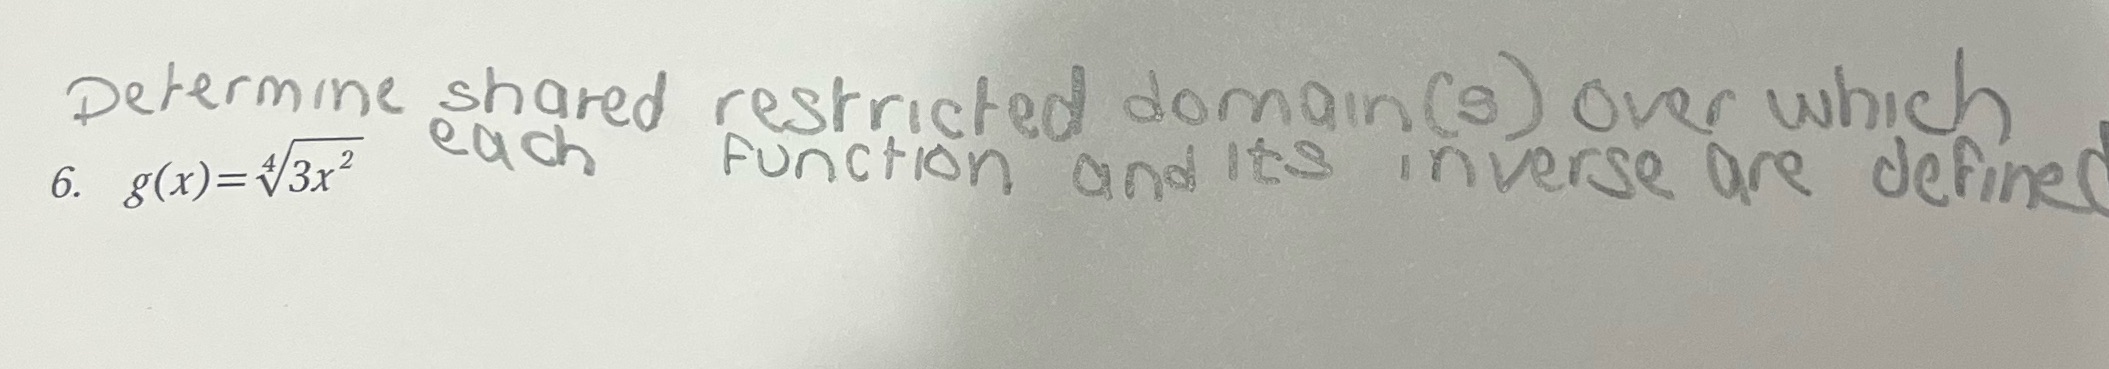 Determine shared restricted domain(s) over which
each function and its inverse are defined
6. g(x)=∜3x²